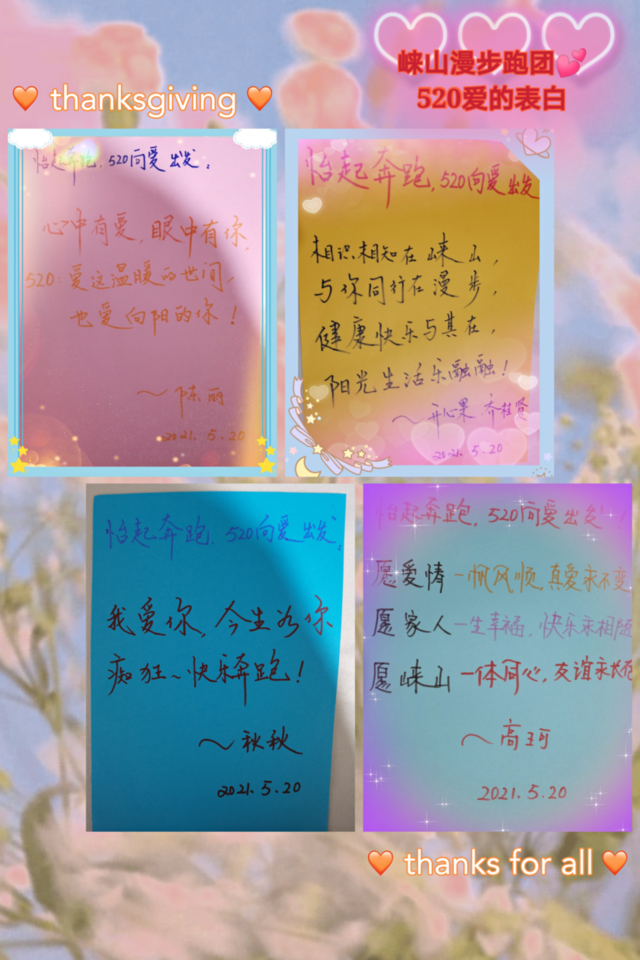 崃山漫步跑团💕
520爱的表白
🧡 thanksgiving 🧡
怡起奔跑，520向爱出发。
心中有爱，眼中有你，
520：爱这温暖的世间，
也爱向阳的你！
～陈丽
2021.5.20
怡起奔跑，520向爱出发
相识相知在崃山，
与你同行在漫步，
健康快乐与其在，
阳光生活乐融融！
～开心果 乔桂贤
2021.5.20
怡起奔跑，520向爱出发。
我爱你，今生为你
痴狂～快乐奔跑！
～秋秋
2021.5.20
怡起奔跑，520向爱出发！
愿爱情一帆风顺，真爱永不变
愿家人一生幸福，快乐永相随
愿崃山一体同心，友谊永长存
～高珂
2021.5.20
🧡 thanks for all 🧡